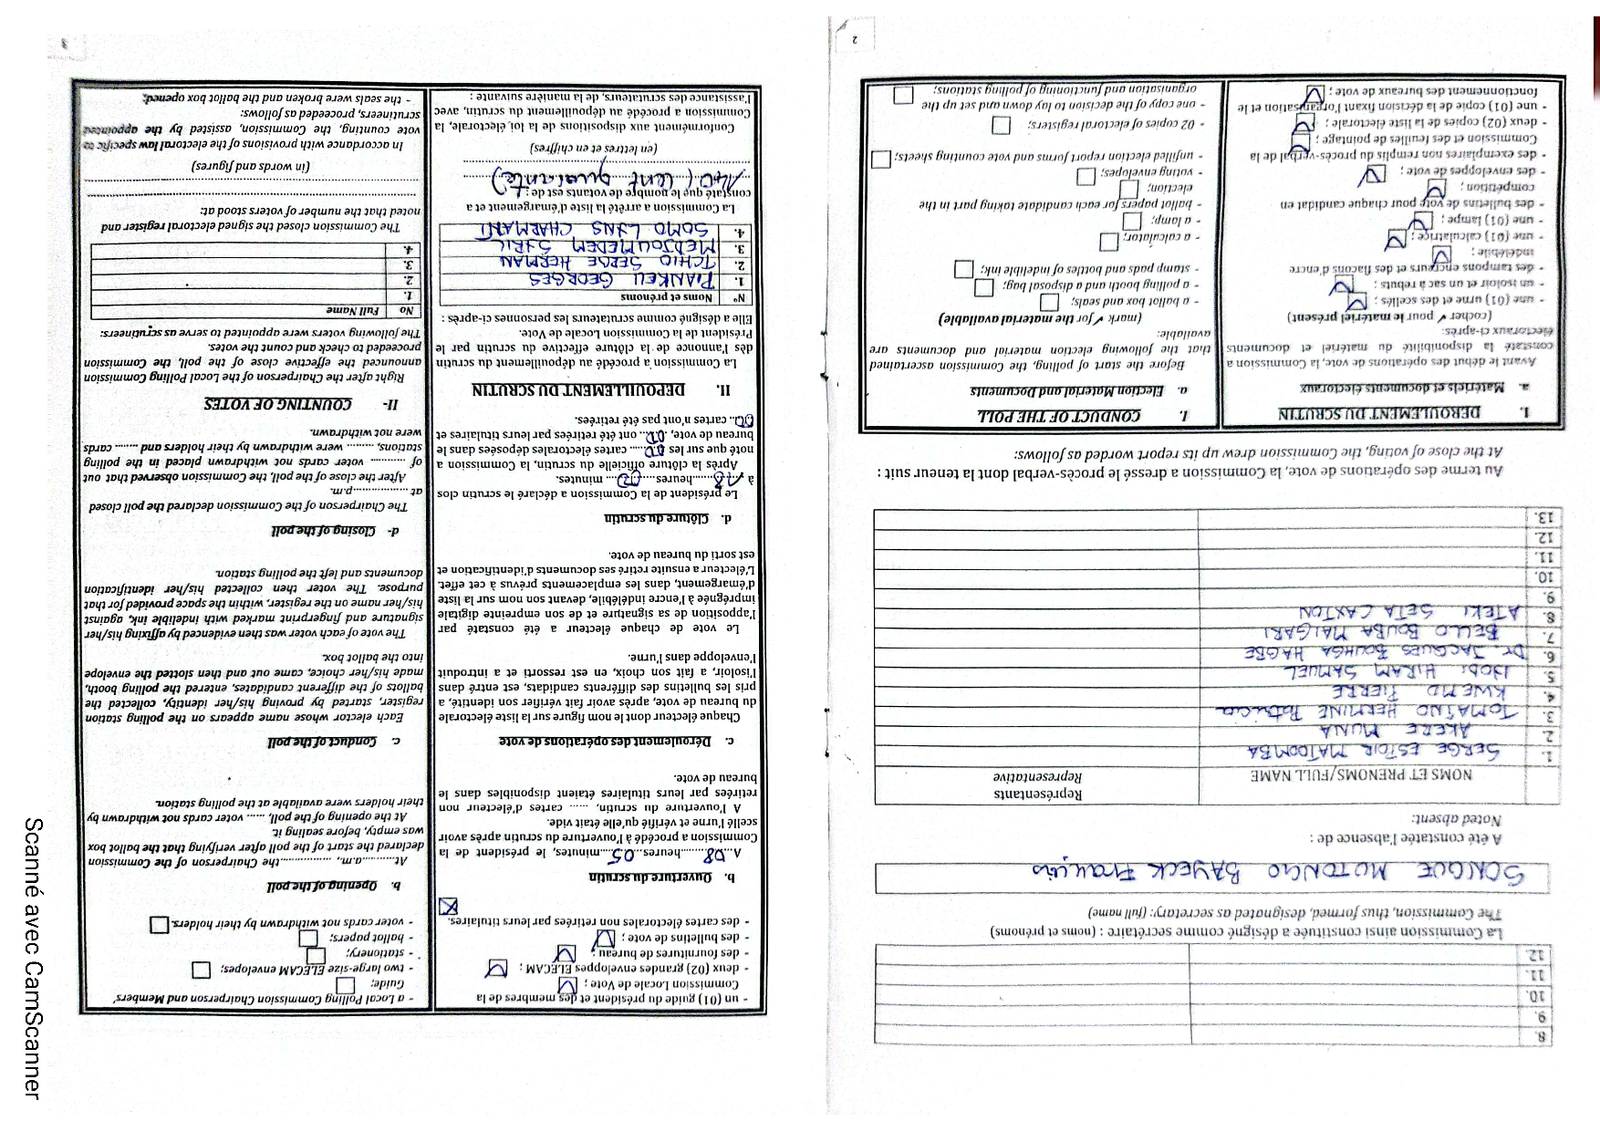 8.
9.
10.
11.
12.
La Commission ainsi constituée a désigné comme secrétaire : (noms et prénoms)
The Commission, thus formed, designated as secretary: (full name)
SONGUE MOTONGO BAYECK François
A été constatée l'absence de :
Noted absent:
NOMS ET PRENOMS/FULL NAME
Représentants
Representative
1. SERGE ESPOIR MATOOMBA
2 AKERE MUNA
3. TOMAÏNO HERMINE Patricia
4. KWEMO PIERRE
5. HIRAM SAMUEL
6. Dr. JACQUES BOUHGA HAGBE
7. BELLO BOUBA MAIGARI
8. ATEKI SETA CAXTON
9.
10.
11.
12.
13.
Au terme des opérations de vote, la Commission a dressé le procès-verbal dont la teneur suit :
At the close of voting, the Commission drew up its report worded as follows:
1. DEROULEMENT DU SCRUTIN
a. Matériels et documents électoraux
Avant le début des opérations de vote, la Commission a
constaté la disponibilité du matériel et documents
électoraux ci-après:
(cocher ✓ pour le matériel présent)
- une (01) urne et des scellés ;
- un isoloir et un sac à rebuts :
- des tampons encreurs et des flacons d'encre
indélébile ;
- une (01) calculatrice ;
- une (01) lampe ;
- des bulletins de vote pour chaque candidat en
compétition ;
- des enveloppes de vote ;
- des exemplaires non remplis du procès-verbal de la
Commission et des feuilles de pointage ;
- deux (02) copies de la liste électorale ;
- une (01) copie de la décision fixant l'organisation et le
fonctionnement des bureaux de vote ;
I. CONDUCT OF THE POLL
a. Election Material and Documents
Before the start of polling, the Commission ascertained
that the following election material and documents are
available:
(mark ✓ for the material available)
- a ballot box and seals;
- a polling booth and a disposal bag;
- stamp pads and bottles of indelible ink;
- a calculator;
- a lamp;
- ballot papers for each candidate taking part in the
election;
- voting envelopes;
- unfilled election report forms and vote counting sheets;
- 02 copies of electoral registers;
- one copy of the decision to lay down and set up the
organisation and functioning of polling stations;
2
- un (01) guide du président et des membres de la
Commission Locale de Vote ;
- deux (02) grandes enveloppes ELECAM ;
- des fournitures de bureau ;
- des bulletins de vote ;
- des cartes électorales non retirées par leurs titulaires.
b. Ouverture du scrutin
A..08....heures...05....minutes, le président de la
Commission a procédé à l'ouverture du scrutin après avoir
scellé l'urne et vérifié qu'elle était vide.
A l'ouverture du scrutin, ...... cartes d'électeur non
retirées par leurs titulaires étaient disponibles dans le
bureau de vote.
c. Déroulement des opérations de vote
Chaque électeur dont le nom figure sur la liste électorale
du bureau de vote, après avoir fait vérifier son identité, a
pris les bulletins des différents candidats, est entré dans
l'isoloir, a fait son choix, en est ressorti et a introduit
l'enveloppe dans l'urne.
Le vote de chaque électeur a été constaté par
l'apposition de sa signature et de son empreinte digitale
imprégnée à l'encre indélébile, devant son nom sur la liste
d'émargement, dans les emplacements prévus à cet effet.
L'électeur a ensuite retiré ses documents d'identification et
est sorti du bureau de vote.
d. Clôture du scrutin
Le président de la Commission a déclaré le scrutin clos
à 18......heures...00... minutes.
Après la clôture officielle du scrutin, la Commission a
noté que sur les 00..... cartes électorales déposées dans le
bureau de vote, 00... ont été retirées par leurs titulaires et
00.. cartes n'ont pas été retirées.
II. DEPOUILLEMENT DU SCRUTIN
La Commission a procédé au dépouillement du scrutin
dès l'annonce de la clôture effective du scrutin par le
Président de la Commission Locale de Vote.
Elle a désigné comme scrutateurs les personnes ci-après :
N° Noms et prénoms
1. PIANKEU GEORGES
2. TCHIO SERGE HERMAN
3. MEDJOUMEDEM SYRIL
4. SOMO LYNS CHARMANT
La Commission a arrêté la liste d'émargement et a
constaté que le nombre de votants est de :
140 ( cent quarante)
(en lettres et en chiffres)
Conformément aux dispositions de la loi, électorale, la
Commission a procédé au dépouillement du scrutin, avec
l'assistance des scrutateurs, de la manière suivante :
- a Local Polling Commission Chairperson and Members'
Guide;
- two large-size ELECAM envelopes;
- stationery;
- ballot papers;
- voter cards not withdrawn by their holders.
b. Opening of the poll
At..........a.m., ..................the Chairperson of the Commission
declared the start of the poll after verifying that the ballot box
was empty, before sealing it.
At the opening of the poll, ...... voter cards not withdrawn by
their holders were available at the polling station.
c. Conduct of the poll
Each elector whose name appears on the polling station
register, started by proving his/her identity, collected the
ballots of the different candidates, entered the polling booth,
made his/her choice, came out and then slotted the envelope
into the ballot box.
The vote of each voter was then evidenced by affixing his/her
signature and fingerprint marked with indelible ink, against
his/her name on the register, within the space provided for that
purpose. The voter then collected his/her identification
documents and left the polling station.
d- Closing of the poll
The Chairperson of the Commission declared the poll closed
at ..................p.m.
After the close of the poll, the Commission observed that out
of .......... voter cards not withdrawn placed in the polling
stations, ......... were withdrawn by their holders and ....... cards
were not withdrawn.
II- COUNTING OF VOTES
Right after the Chairperson of the Local Polling Commission
announced the effective close of the poll, the Commission
proceeded to check and count the votes.
The following voters were appointed to serve as scrutineers:
No Full Name
1.
2.
3.
4.
The Commission closed the signed electoral register and
noted that the number of voters stood at:
(in words and figures)
In accordance with provisions of the electoral law specific to
vote counting, the Commission, assisted by the appointed
scrutineers, proceeded as follows:
- the seals were broken and the ballot box opened;
3
Scanné avec CamScanner